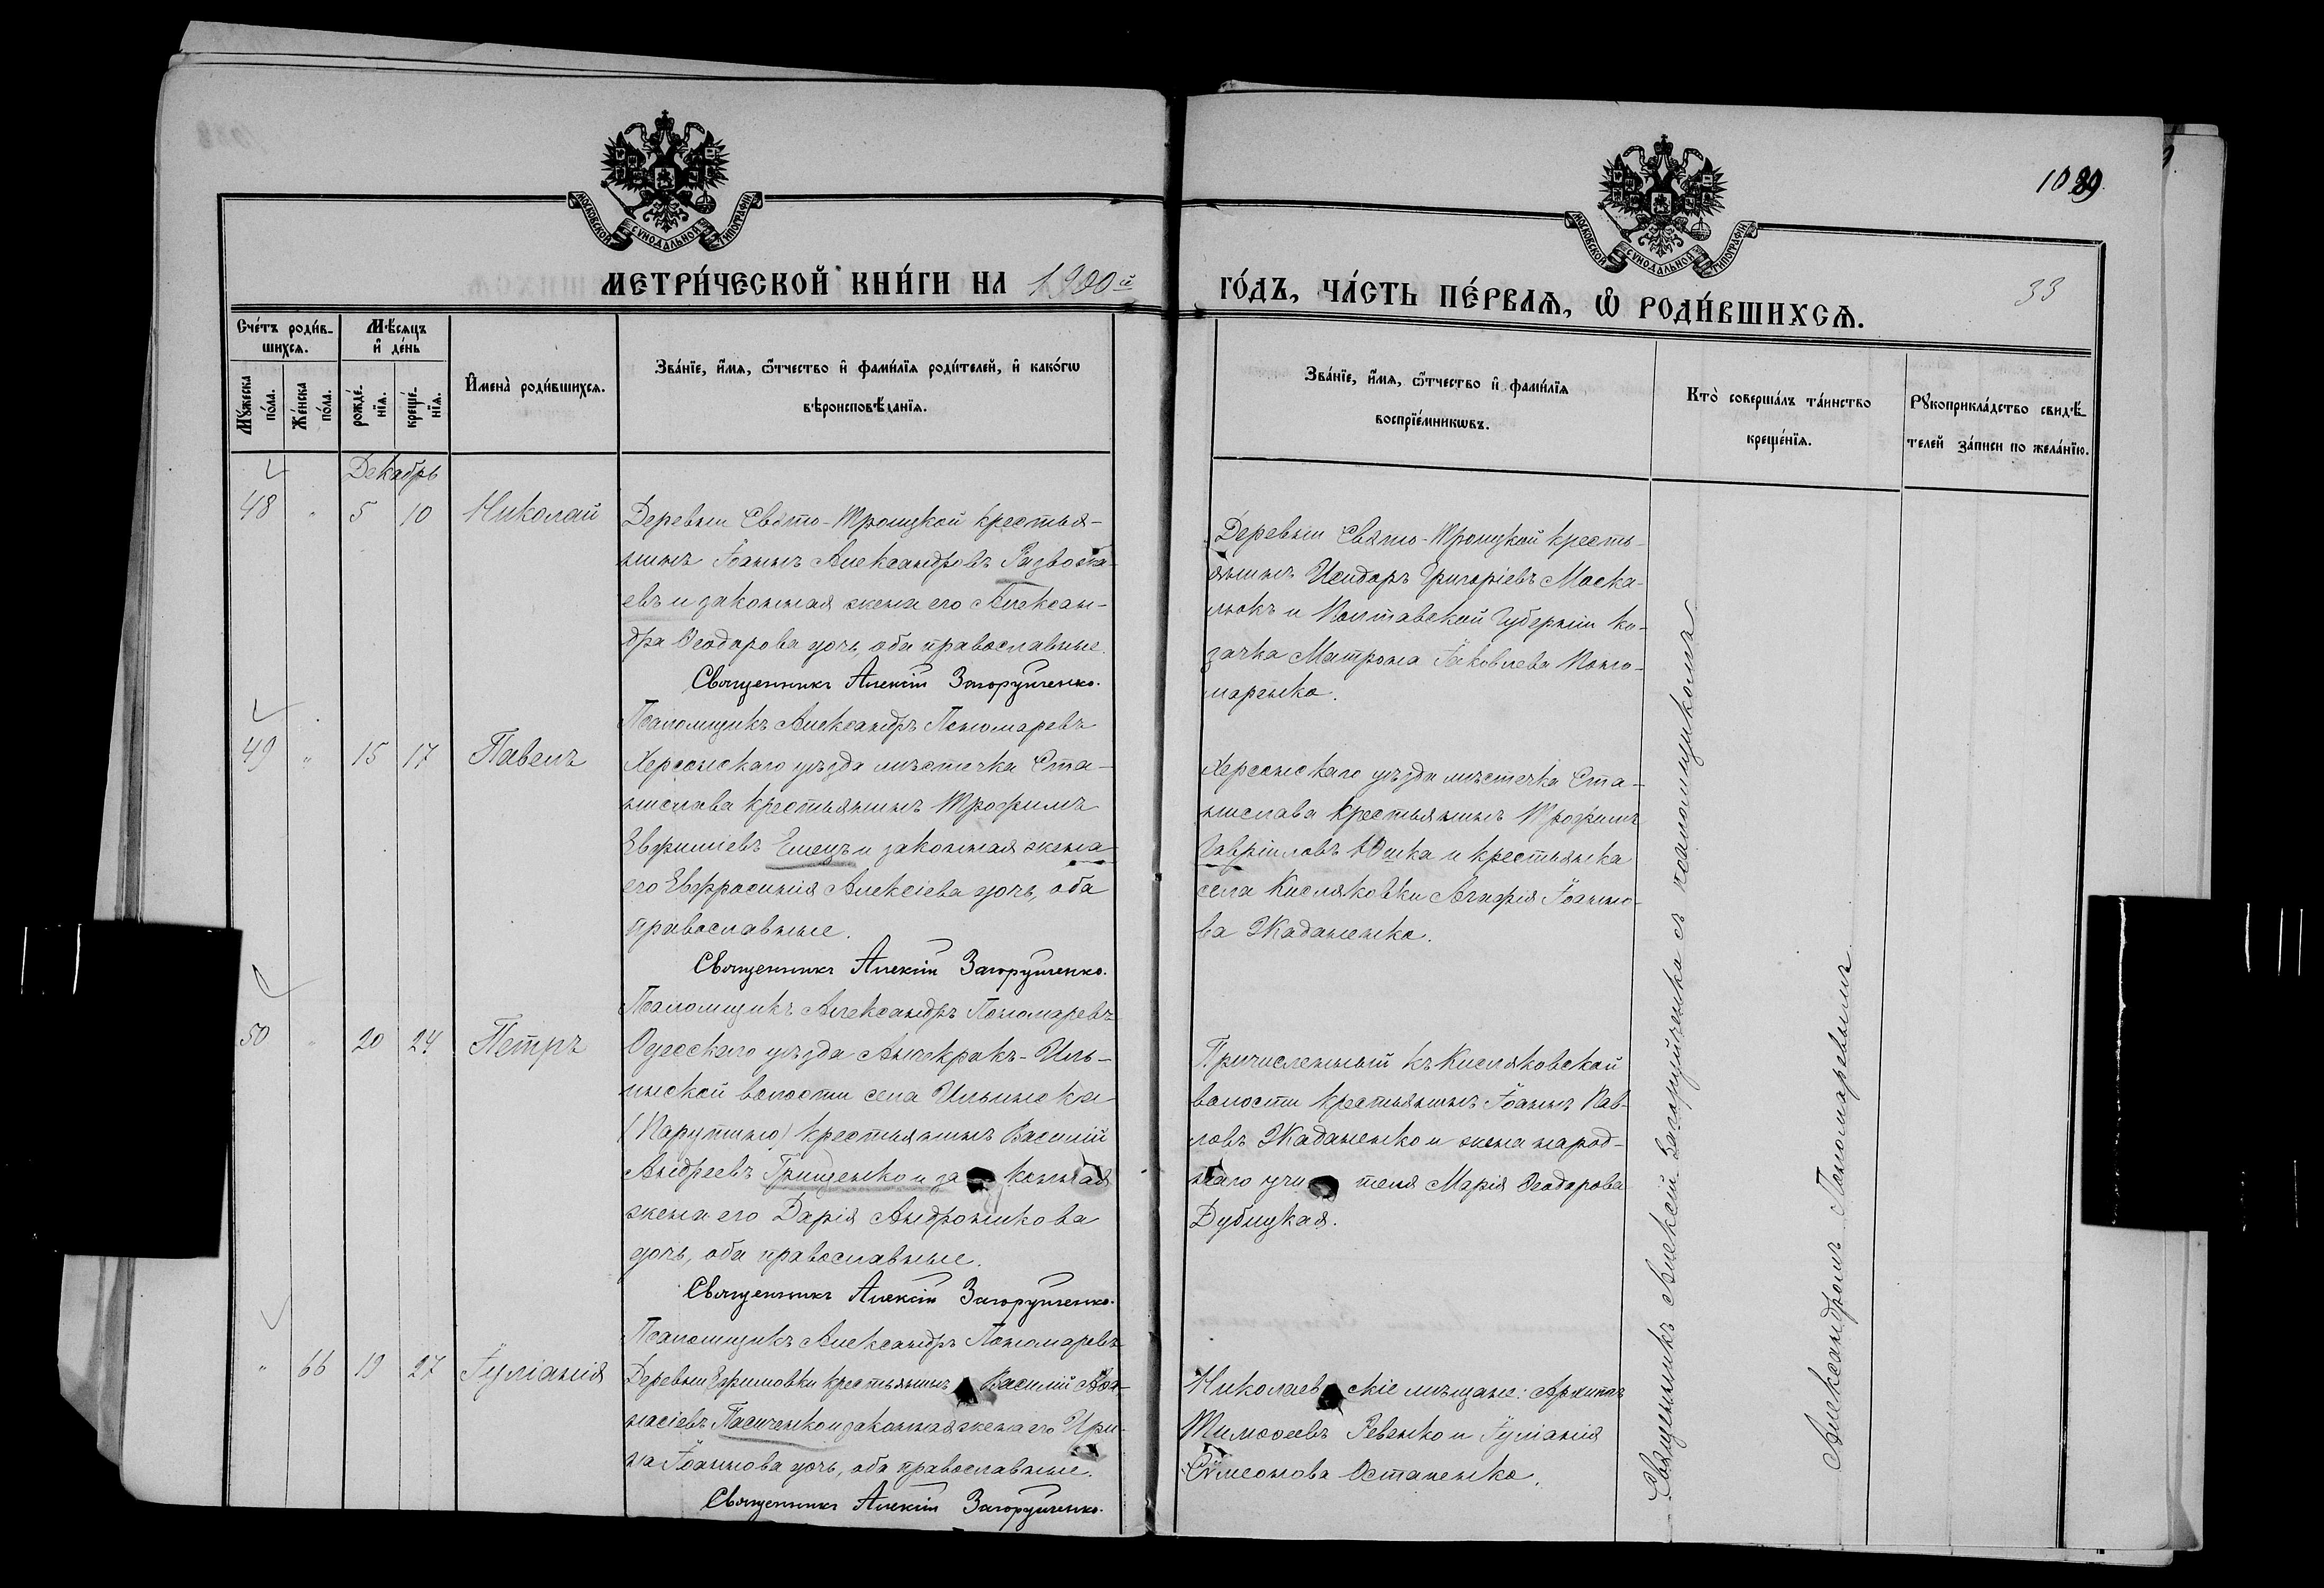 1089
МОСКОВСКОЙ СѴНОДАЛЬНОЙ ТИПОГРАФІИ
МОСКОВСКОЙ СѴНОДАЛЬНОЙ ТИПОГРАФІИ
МЕТРИ́ЧЕСКОЙ КНИ́ГИ НА 1900й
ГО́ДЪ, ЧА́СТЬ ПЕ́РВАѦ, Ѽ РОДИ́ВШИХСѦ.
33
Сче́тъ роди́в-
шихсѧ.
Мꙋ́жеска
по́ла.
Же́нска
по́ла.
Мѣ́сѧцъ
и҆ де́нь
рожде́-
нїѧ.
креще́-
нїѧ.
И҆мена̀ роди́вшихсѧ.
Зва́нїе, и҆́мѧ, ѻ҆́тчество и҆ фами́лїѧ роди́телей, и҆ како́гѡ
вѣроисповѣ́данїѧ.
Зва́нїе, и҆́мѧ, ѻ҆́тчество и҆ фами́лїѧ
воспрїе́мникѡвъ.
Кто̀ соверша́лъ та́инство
креще́нїѧ.
Рꙋкоприкла́дство свидѣ́-
телей за́писи по жела́нїю.
Декабрь
48 " 5 10 Николай
Деревни Свято-Троицкой крестья-
нинъ Іоаннъ Александровъ Развозка-
евъ и законная жена его Алексан-
дра Ѳеодорова дочь, оба православные.
Священникъ Алексій Загоруйченко.
Псаломщикъ Александръ Пономаревъ
Деревни Свято-Троицкой кресть-
янинъ Исидоръ Григоріевъ Моска-
люкъ и Полтавской Губерніи ка-
зачка Матрона Іаковлева Поно-
маренко.
49 " 15 17 Павелъ
Херсонскаго уѣзда мѣстечка Ста-
нислава крестьянинъ Трофимъ
Евфиміевъ Емецъ и законная жена
его Евфросинія Алексіева дочь, оба
православные.
Священникъ Алексій Загоруйченко.
Псаломщикъ Александръ Пономаревъ
Херсонскаго уѣзда мѣстечка Ста-
нислава крестьянинъ Трофимъ
Гавріиловъ Юшка и крестьянка
села Кисляковки Агафія Іоанно-
ва Жаданенко.
50 " 20 24 Петръ
Одесскаго уѣзда Анчекракъ-Иль-
инской волости села Ильинска
(Парутино) крестьянинъ Василій
Андреевъ Грищенко и законная
жена его Дарія Андроникова
дочь, оба православные.
Священникъ Алексій Загоруйченко.
Псаломщикъ Александръ Пономаревъ
Причисленный къ Кисляковской
волости крестьянинъ Іоаннъ Пав-
ловъ Жаданенко и жена народ-
наго учителя Марія Ѳеодорова
Дубицкая.
" 66 19 27 Іуліанія
Деревни Ефимовки крестьянинъ Василій Аѳа-
насіевъ Пасиченко и законная жена его Ири-
на Іоаннова дочь, оба православные.
Священникъ Алексій Загоруйченко.
Николаевскіе мѣщане: Архипъ
Тимоѳеевъ Ревенко и Іуліанія
Сѵмеонова Остапенко.
Священникъ Алексій Загоруйченко съ псаломщикомъ
Александромъ Пономаревымъ